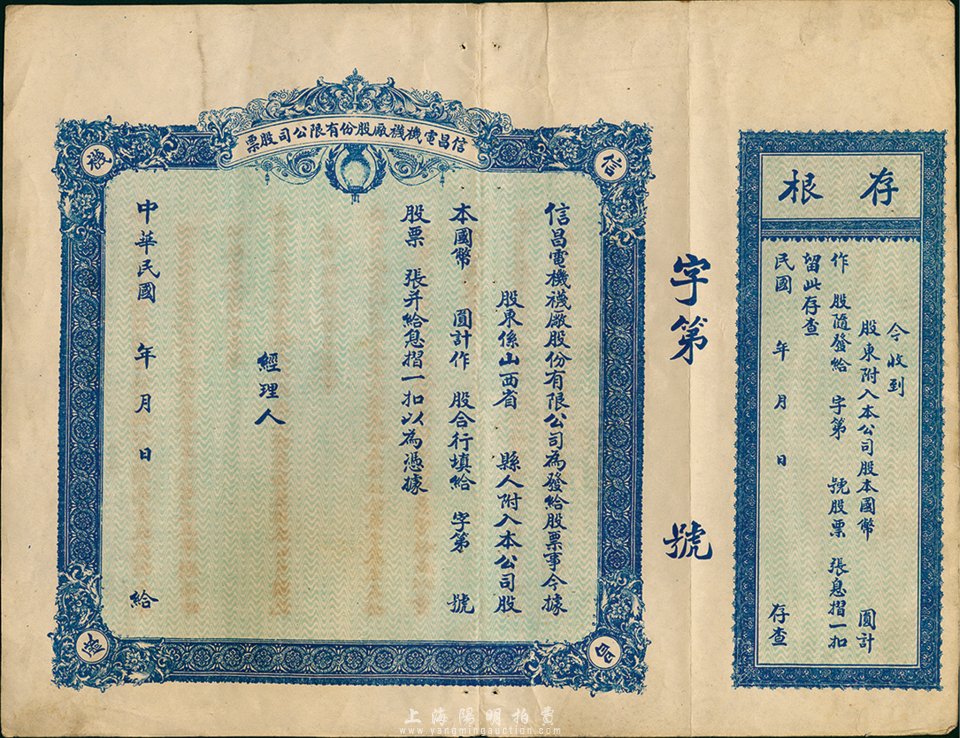 存根
今收到
股東附入本公司股本國幣 圓計
作 股隨發給 字第 號股票 張息摺一扣
留此存查
民國 年 月 日 存查
字第 號
信昌電機襪廠股份有限公司股票
信
昌
襪
信昌電機襪廠股份有限公司為發給股票事今據
股東係山西省 縣人附入本公司股
本國幣 圓計作 股合行填給 字第 號
股票 張并給息摺一扣以為憑據
經理人
中華民國 年 月 日 給
上海陽明拍賣
www.yangmingauction.com